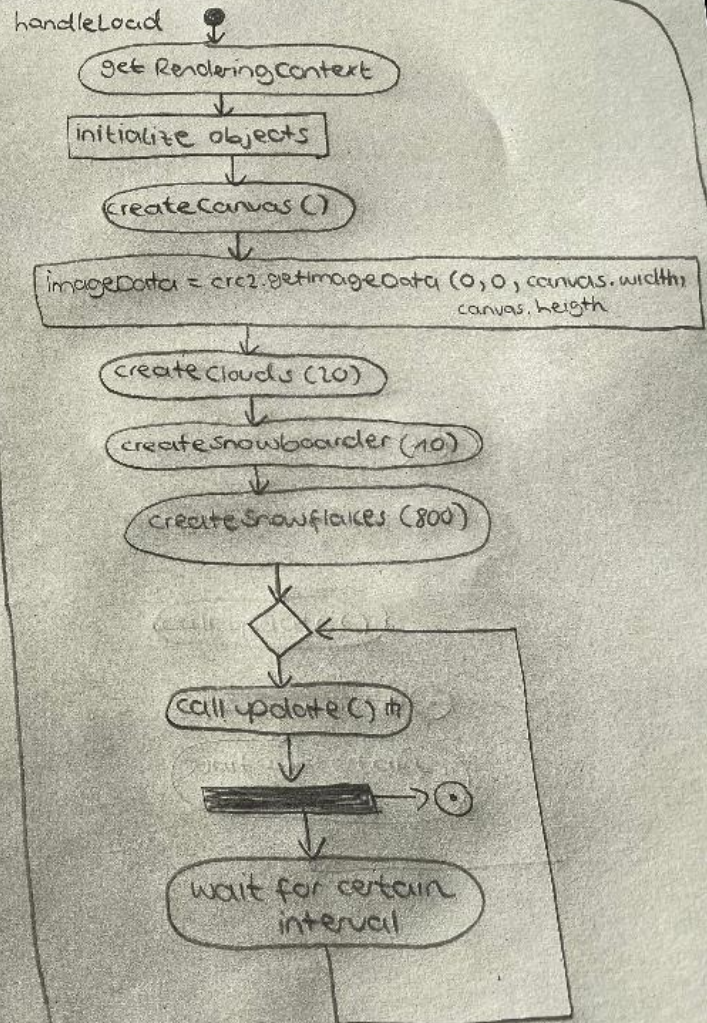 handleLoad
get RenderingContext
initialize objects
createCanvas ()
imageData = crc2.getImageData (0,0, canvas.width,
canvas.heigth
createClouds (20)
createSnowboarder (10)
createSnowflakes (800)
call update ()
wait for certain
interval